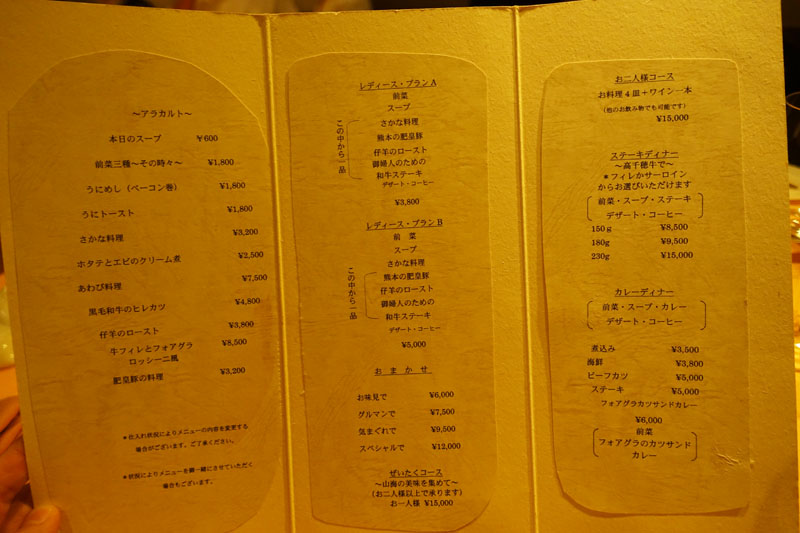 ～アラカルト～
本日のスープ ￥600
前菜三種～その時々～ ¥1,800
うにめし（ベーコン巻） ¥1,800
うにトースト ¥1,800
さかな料理 ¥3,200
ホタテとエビのクリーム煮 ¥2,500
あわび料理 ¥7,500
黒毛和牛のヒレカツ ¥4,800
仔羊のロースト ¥3,800
牛フィレとフォアグラ ¥8,500
ロッシーニ風
肥皇豚の料理 ¥3,200
＊仕入れ状況によりメニューの内容を変更する
場合がございます。ご了承ください。
＊状況によりメニューを御一緒にさせていただく
場合もございます。
レディース・プランA
前菜
スープ
この中から一品
さかな料理
熊本の肥皇豚
仔羊のロースト
御婦人のための
和牛ステーキ
デザート・コーヒー
¥3,800
レディース・プランB
前 菜
スープ
さかな料理
この中から一品
熊本の肥皇豚
仔羊のロースト
御婦人のための
和牛ステーキ
デザート・コーヒー
¥5,000
お ま か せ
お味見で ¥6,000
グルマンで ¥7,500
気まぐれで ¥9,500
スペシャルで ¥12,000
ぜいたくコース
～山海の美味を集めて～
（お二人様以上で承ります）
お一人様 ¥15,000
お二人様コース
お料理４皿＋ワイン一本
（他のお飲み物でも可能です）
¥15,000
ステーキディナー
～高千穂牛で～
＊フィレかサーロイン
からお選びいただけます
前菜・スープ・ステーキ
デザート・コーヒー
150ｇ ¥8,500
180g ¥9,500
230g ¥15,000
カレーディナー
前菜・スープ・カレー
デザート・コーヒー
煮込み ¥3,500
海鮮 ¥3,800
ビーフカツ ¥5,000
ステーキ ¥5,000
フォアグラカツサンドカレー
¥6,000
前菜
フォアグラのカツサンド
カレー